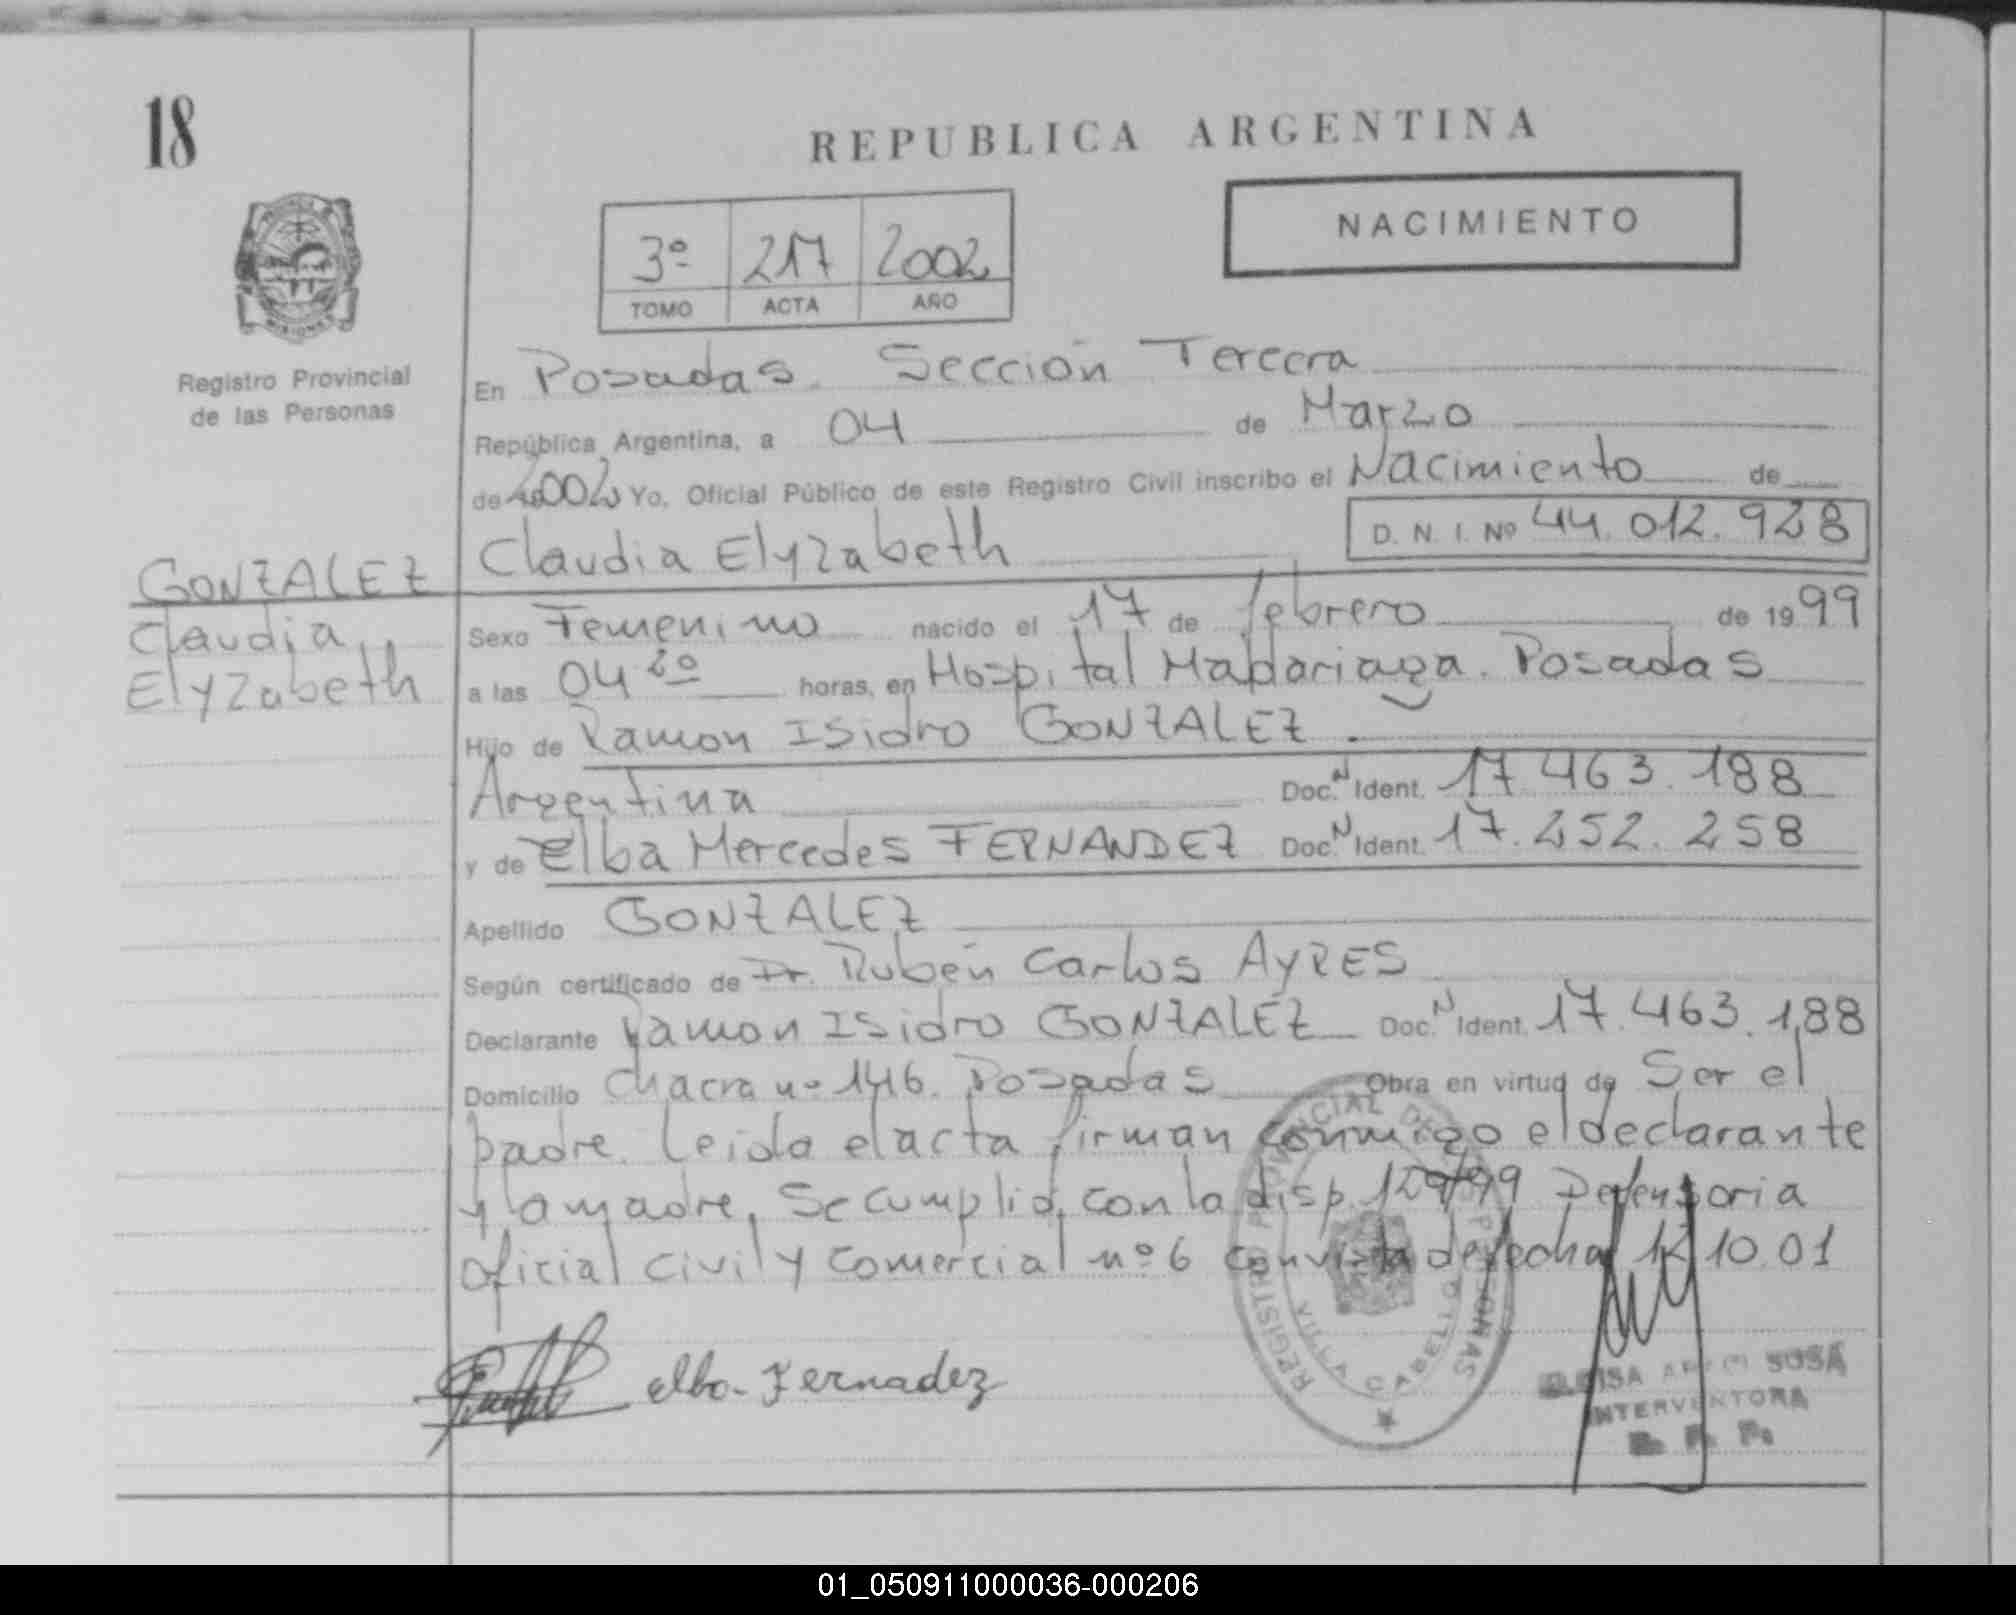 18
REPUBLICA ARGENTINA
NACIMIENTO
3º 217 2002
TOMO ACTA AÑO
Registro Provincial
de las Personas
En Posadas. Sección Tercera
República Argentina, a 04 de Marzo
de 2002 Yo, Oficial Público de este Registro Civil inscribo el Nacimiento de
D. N. I. Nº 44.012.928
Claudia Elyzabeth
GONZALEZ
Claudia
Elyzabeth
Sexo Femenino nacido el 17 de febrero de 1999
a las 04 20 horas, en Hospital Madariaga. Posadas
Hijo de Ramon Isidro GONZALEZ.
Argentina Doc. N Ident. 17.463.188
y de Elba Mercedes FERNANDEZ Doc. N Ident. 17.252.258
Apellido GONZALEZ
Según certificado de Dr. Rubén Carlos AYRES
Declarante Ramon Isidro GONZALEZ Doc. N Ident. 17.463.188
Domicilio Chacra nº 146. Posadas Obra en virtud de Ser el
padre. Leida el acta firman conmigo el declarante
y la madre, Se cumplió con la disp. 129/99 Defensoria
oficial civil y comercial nº 6 con vista de fecha 10.01
elba Fernadez
REGISTRO PROVINCIAL DE LAS PERSONAS
VILLA CABELLO
SUSA
INTERVENTORA
R. P. P.
01_050911000036-000206